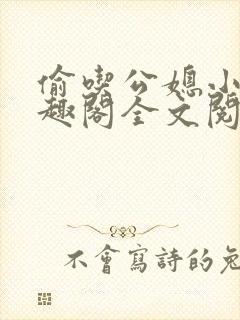 偷喫公媳小
趣閣全文閱
不會寫詩的兔